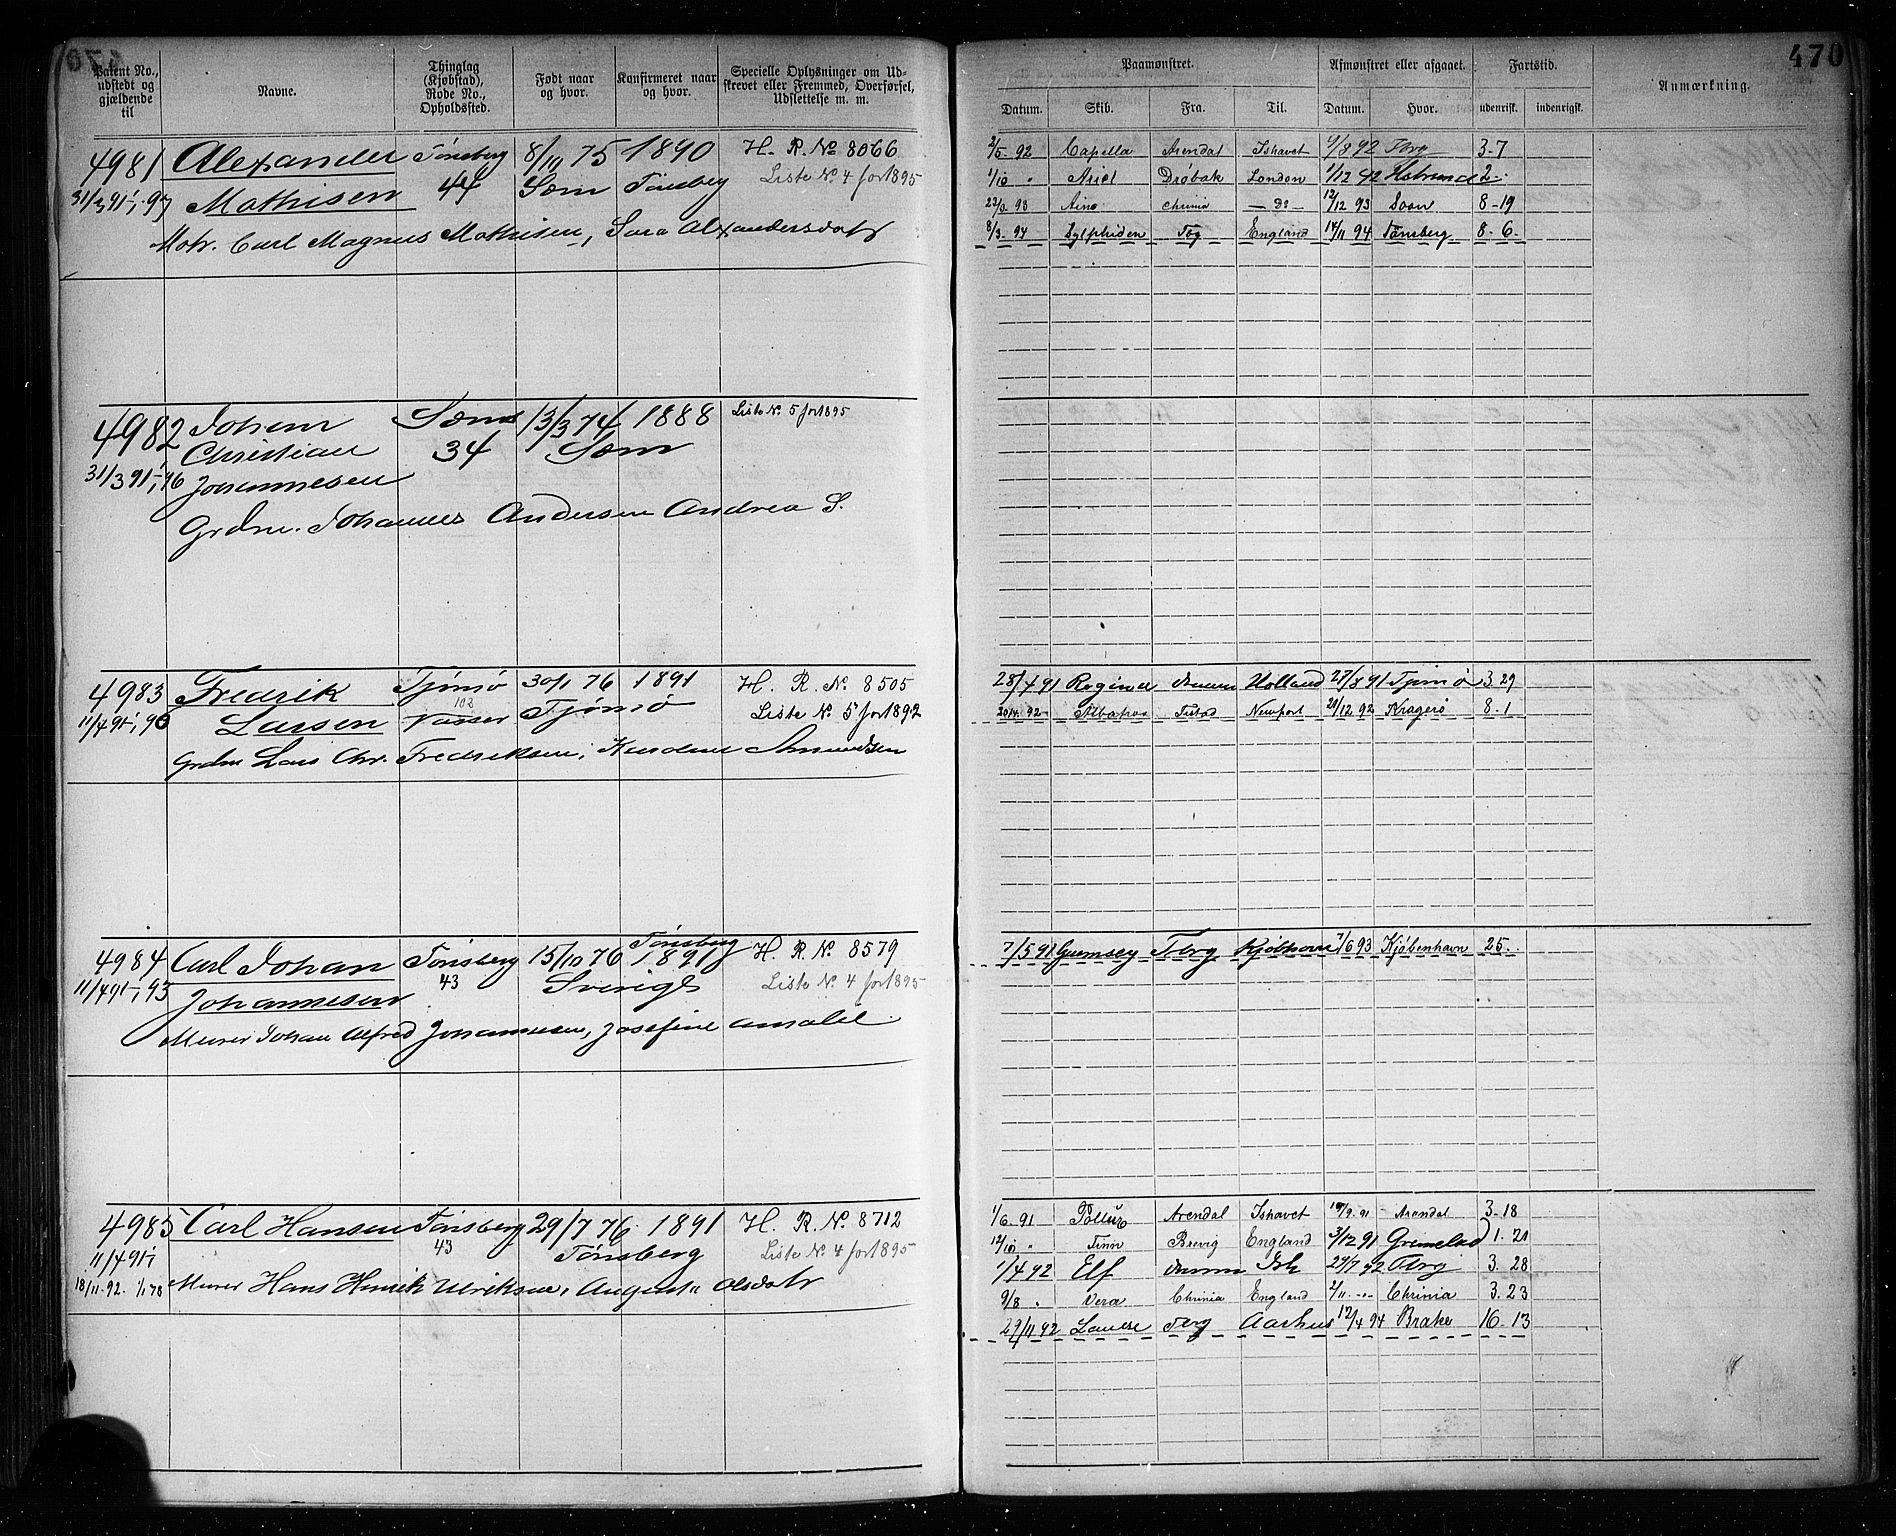 470
Patent No., udstedt og gjældende til
Navne.
Thinglag (Kjøbstad), Rode No., Opholdssted.
Født naar og hvor.
Konfirmeret naar og hvor.
Specielle Oplysninger om Udskrevet eller Fremmed, Overførsel, Udslettelse m. m.
Paamønstret.
Afmønstret eller afgaaet.
Fartstid.
Anmærkning.
Datum. Skib. Fra. Til. Datum. Hvor. udenrigsk. indenrigsk.
4981 Alexander Tönsberg 8/10 75 1890 H. R. No 8066
31/3 91 97 Mathisen 44 Sæm Tönsberg Liste No 4 for 1895
Motr. Carl Magnus Mathisen, Sara Alexandersdatr
2/5. 92 Capella Arendal Ishavet 9/8 92 Tbrg 3-7
1/10 " Ariel Drøbak London 1/12 92 2
22/3. 93 Aino Chrinia — do — 12/12 93 Soon 8-19
8/3. 94 Sylphiden Tbg England 14/11 94 Tønsberg 8-6.
4982 Johan Sæm 13/3 74 1888 Liste No 5 for 1895
Christian 34 Sæm
31/3 91 96 Johannesen
Grdm. Johannes Andersen Andrea S.
4983 Fredrik Tjømø 30/1 76 1891 H. R. No 8505
11/4 91 96 Larsen 108 Vasser Tjømø Liste No 5 for 1892
Grdm Lars Chr. Fredriksen, Amundsen
28/4 91 Regina Holland 27/8 91 Tjømø 3.29
20/4. 92 Albatros Newport 20/12 92 Kragerø 8-1
4984 Carl Johan Tönsberg 15/10 76 Tönsberg 1891 H. R. No 8579
11/4 91 93 Johannesen 43 Sverige Liste No 4 for 1895
Murer Johan Alfred Johannesen, Josefine Amalie
7/5 91 Guernsey Tbrg Kjøbhavn 7/6 93 Kjøbenhavn 25-.
4985 Carl Hansen Tönsberg 29/7 76 1891 H. R. No 8712
11/4 91 43 Tönsberg Liste No 4 for 1895
18/11. 92. 1/1 98 Murer Hans Henrik Ulriksen, August. Olsdatr
1/6. 91 Pollux Arendal Ishavet 19/9. 91 Arendal 3.18
12/10 " Finn Brevig England 3/12 91 Grimstad 1.21
1/4 92 Elf Ish 29/7 92 Tbrg 3.28
9/8 . Vera Chrinia England 2/11 -"- Chrinia 3.23
29/11 92 Tbrg Aarhus 12/4 94 Brake 16-13